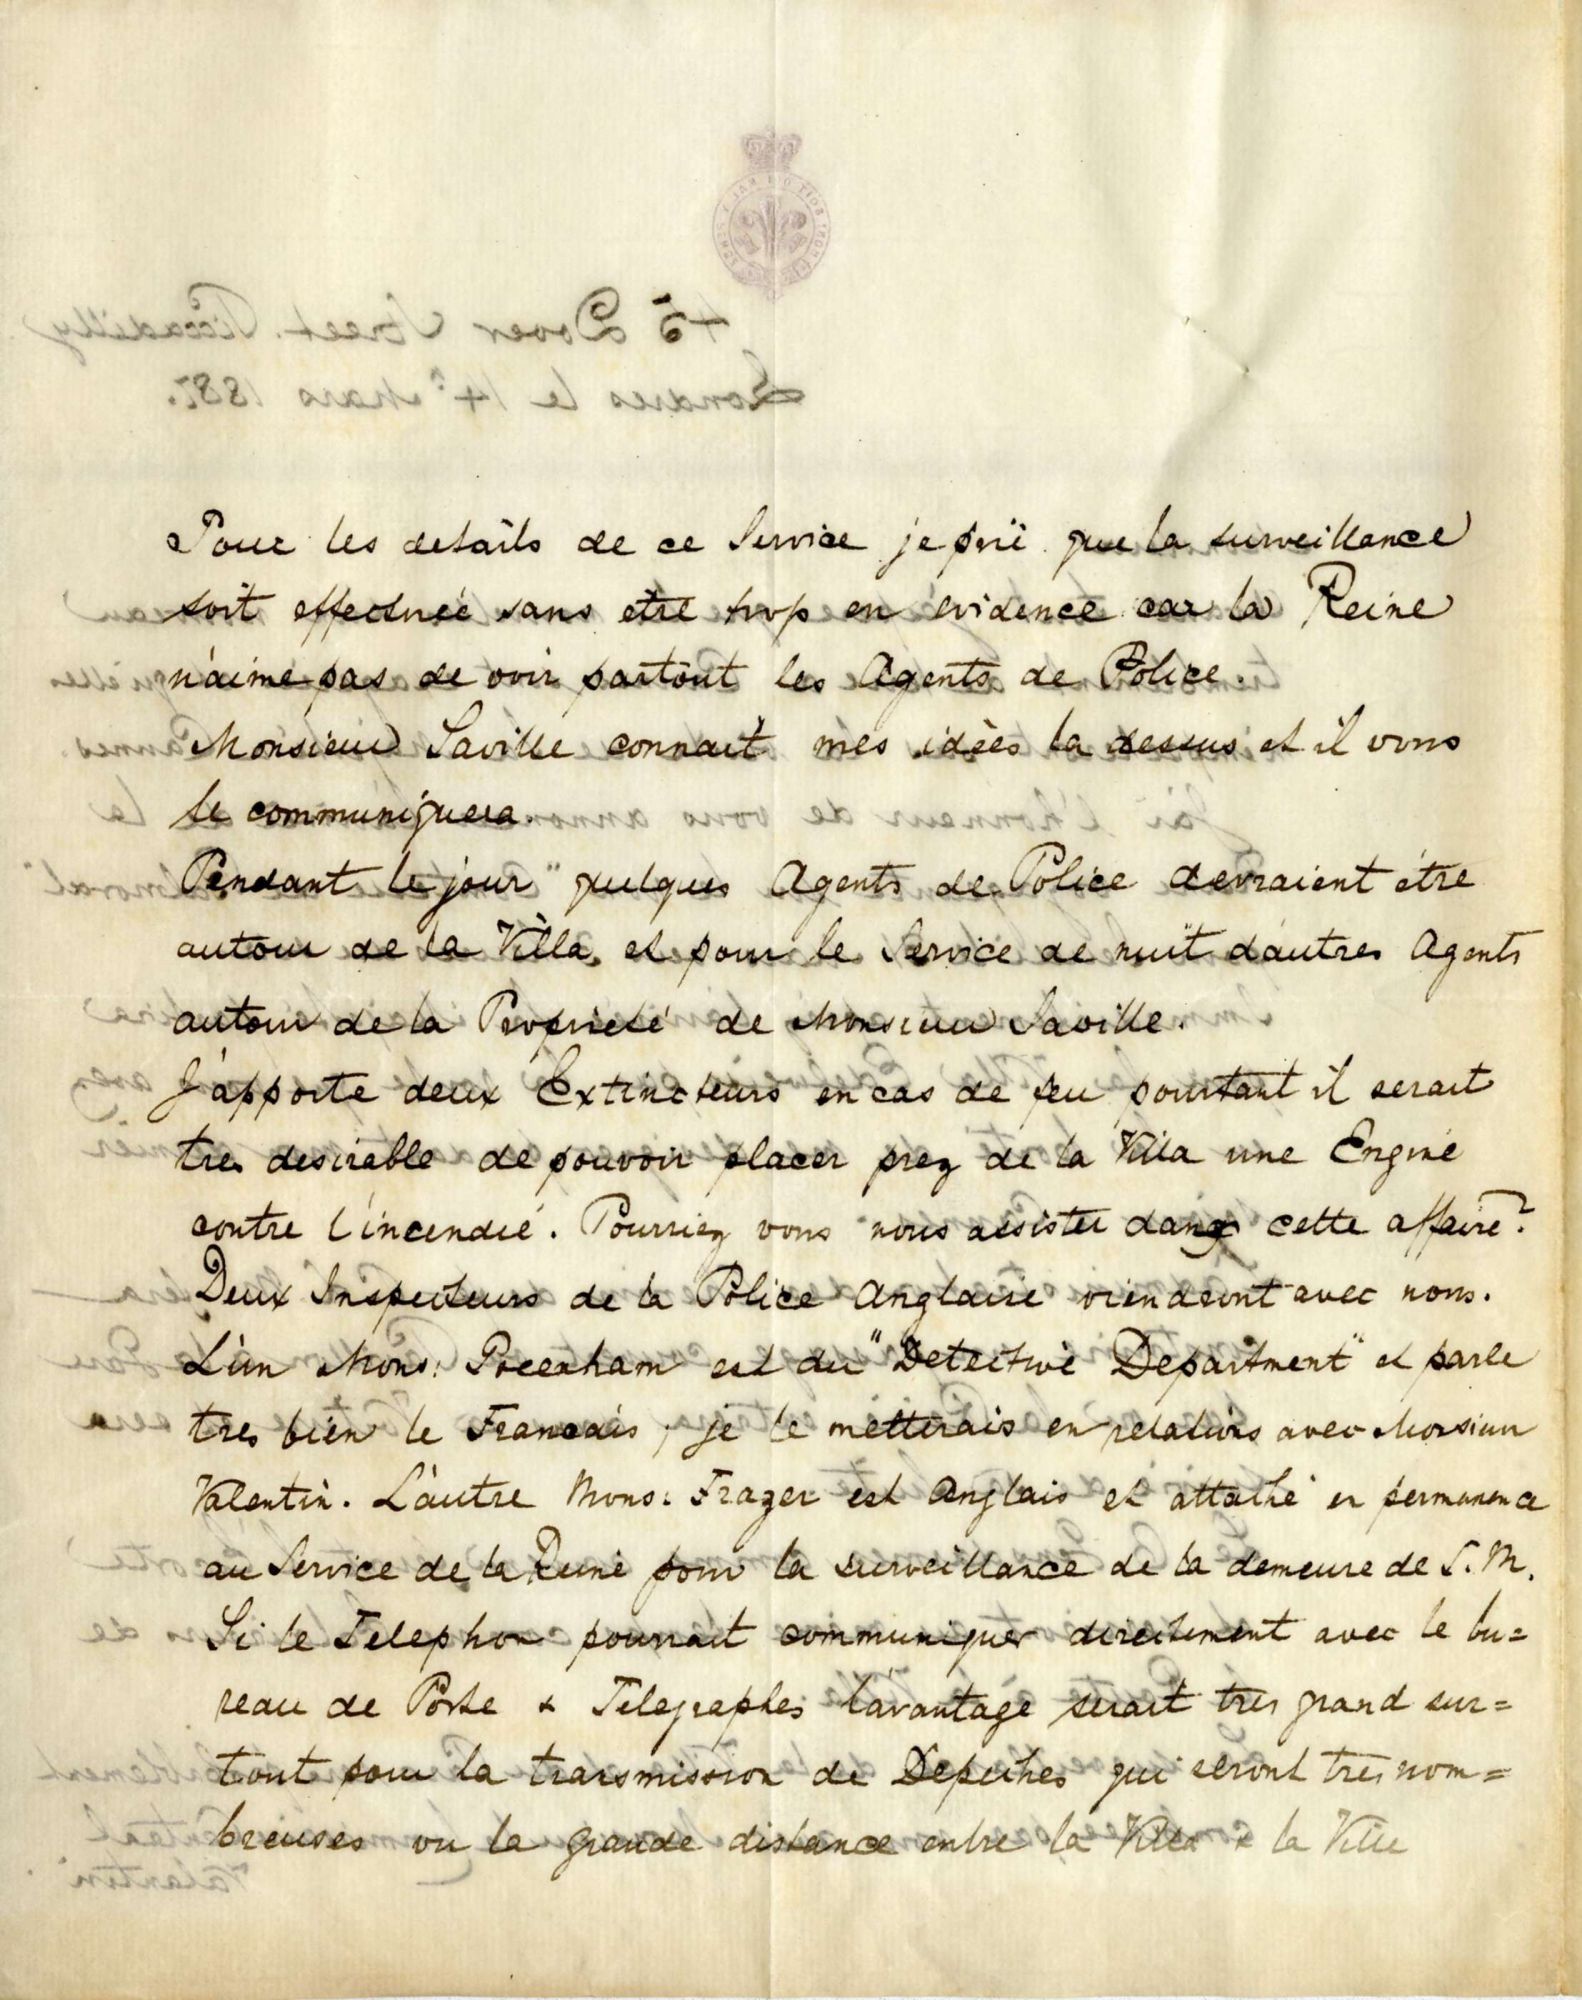 Pour les details de ce Service je prie que la surveillance
soit effectuée sans etre trop en evidence car la Reine
n'aime pas de voir partout les Agents de Police.
Monsieur Saville connait mes idées la dessus et il vous
le communiquera.
Pendant le jour quelques Agents de Police devraient être
autour de la Villa, et pour le Service de nuit d'autres Agents
autour de la Proprieté de Monsieur Saville.
J'apporte deux Extincteurs en cas de feu pourtant il serait
tres desirable de pouvoir placer prez de la Villa une Engine
contre l'incendie. Pourriez vous nous assister dans cette affaire?
Deux Inspecteurs de la Police Anglaise viendront avec nous.
L'un Mons: est du "Detective Department" et parle
tres bien le Francais; je le metterais en relations avec Monsieur
Valentin. L'autre Mons: Frazer est Anglais et attaché en permanence
au Service de la Reine pour la surveillance de la demeure de S.M.
Si le Telephon pourrait communiquer directement avec le bu=
reau de Poste & Telegraphes l'avantage serait tres grand sur=
tout pour la transmission de Depeches qui seront tres nom=
breuses vu la grande distance entre la Villa & la Ville